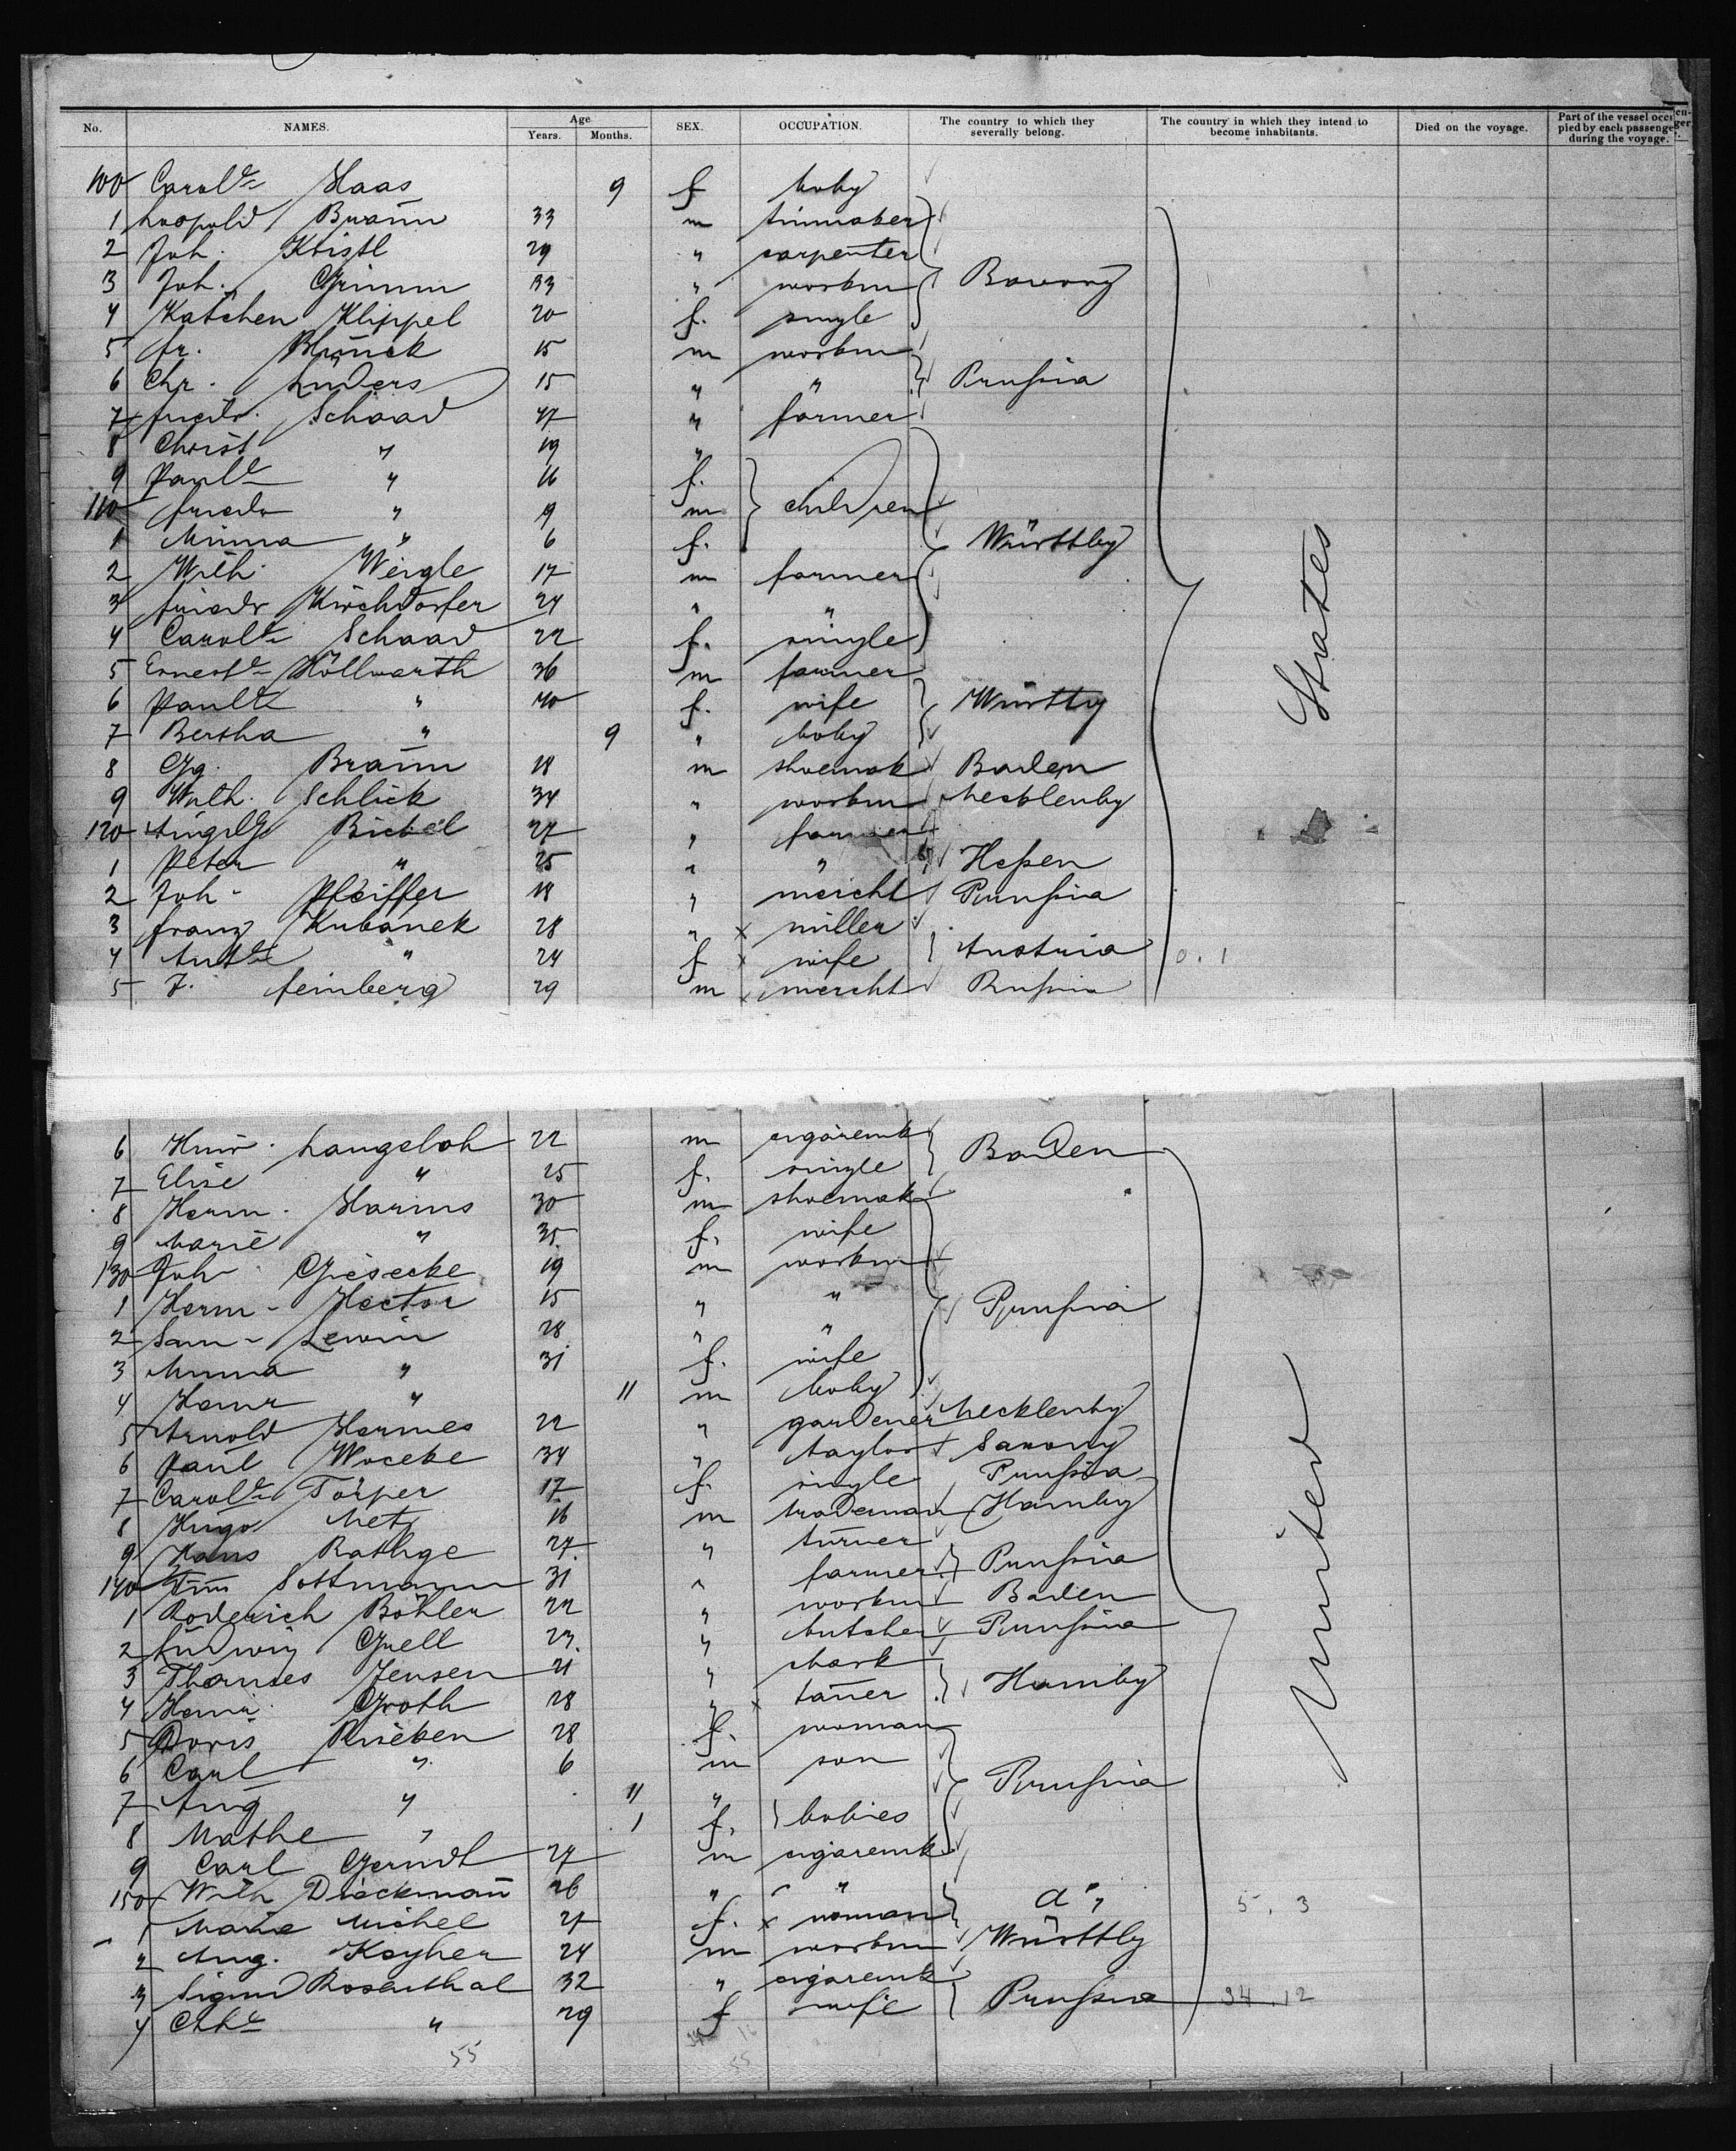 No. NAMES. Age Years. Months. SEX. OCCUPATION. The country to which they severally belong. The country in which they intend to become inhabitants. Died on the voyage. Part of the vessel occupied by each passenger during the voyage.
100 Carole Haas 9 f baby
1 Leopold Braun 33 m tinmaker
2 Joh. Kristl 29 " carpenter
3 Joh. Grimm 33 " workm Bavary
4 Katchen Klippel 20 f. single
5 Fr. Blunck 15 m workm
6 Chr. Lüders 15 " " Prussia
7 Friedr. Schaad 47 " farmer
8 Christ " 19 "
9 Paule " 16 f.
110 Friedr " 9 m children
1 Minna " 6 f. Württbg
2 Wilh. Weigle 17 m farmer
3 Friedr Kirchdorfer 24 " "
4 Carole Schaad 22 f. single
5 Erneste Höllwarth 36 m farmer
6 Paule " 40 f. wife Württbg
7 Bertha " 9 " baby
8 Gg. Braun 18 m shoemak Baden
9 Wilh. Schlick 34 " workm Mecklenbg
120 Bickel 27 " farmer
1 Peter " 25 " " Hessen
2 Joh. Pfeiffer 18 " mercht Prussia
3 Franz Kubanek 28 " x miller
4 Ante " 24 f x wife Austria 0. 1
5 J. Feinberg 29 m x mercht Russia
States
6 Heinr. Langeloh 22 m cigaremk Baden
7 Elise " 25 f. single
8 Herm. Harms 30 m shoemak
9 Marie " 35 f. wife
130 Joh Giesecke 19 m workm
1 Herm. Hector 15 " " Prussia
2 Sam. Lewin 28 " "
3 Minna " 31 f. wife
4 Henr " 11 m baby
5 Arnold Harmes 22 " gardener Mecklenbg
6 Paul Woceke 34 " taylor Saxony
7 Carole Törper 17 f. single Prussia
8 Hugo Metz 16 m trademan Hambg
9 Hans Rathge 27 " turner
140 Tim Sottmann 31 " farmer Prussia
1 Roderich Böhler 22 " workm Baden
2 Ludwig Grell 23 " butcher Prussia
3 Thomes Jensen 21 "
4 Heinr. Groth 28 " x taner Hambg
5 Doris Rieken 28 f. woman
6 Carl " 6 m son
7 Aug " 11 " Prussia
8 Mathe " 1 f. babies
9 Carl Gerndt 27 m cigaremk
150 Wilh Dieckmañ 26 " "
1 Marie Michel 27 f. x woman do 5. 3
2 Aug. Kayher 24 m workm Württbg
3 Sigmd Rosenthal 32 " cigaremk
4 Chhe " 29 f wife Prussia 34.12
United
55
55